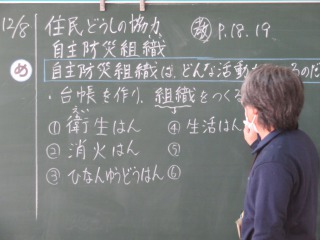 12/8 住民どうしの協力 教 P.18.19
自主防災組織
め 自主防災組織は、どんな活動を
・台帳を作り、組織をつくる
えい
①衛生はん ④生活はん
②消火はん ⑤
③ひなんゆうどうはん ⑥